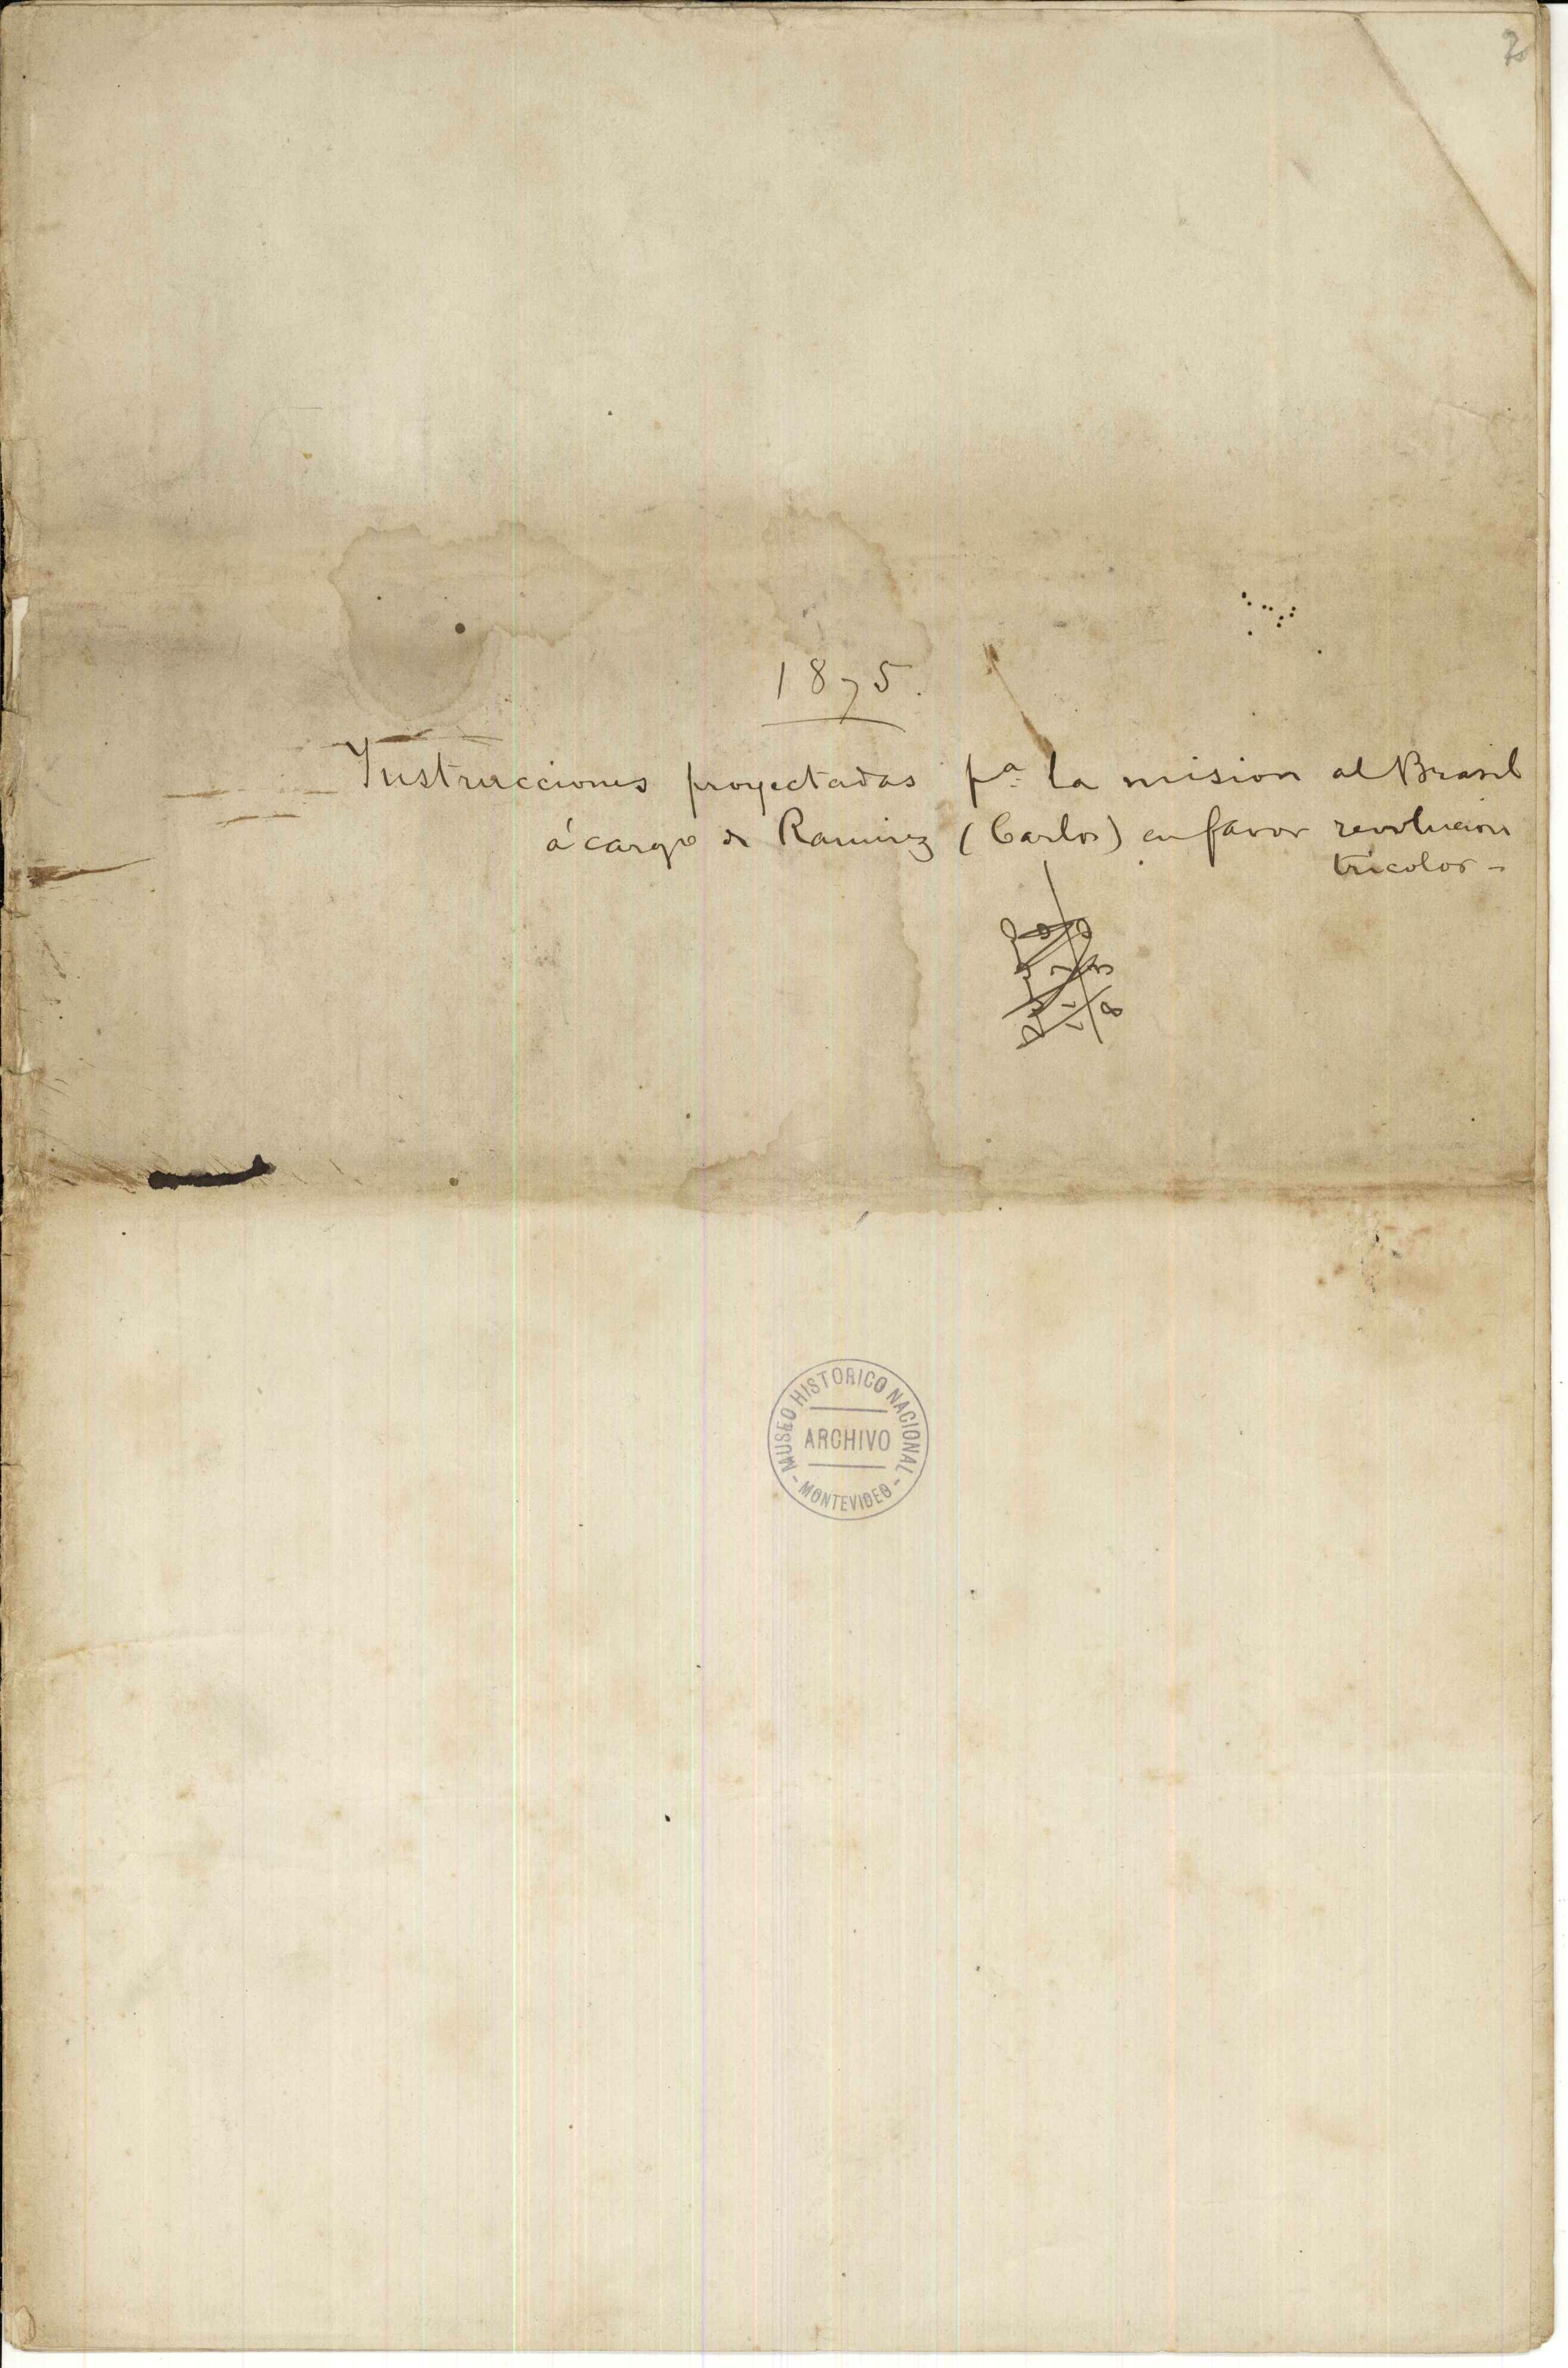 1875.
Instrucciones proyectadas pa. la mision al Brasil
á cargo de Ramirez (Carlos) en favor revolucion
tricolor -
MUSEO HISTORICO NACIONAL
ARCHIVO
- MONTEVIDEO -